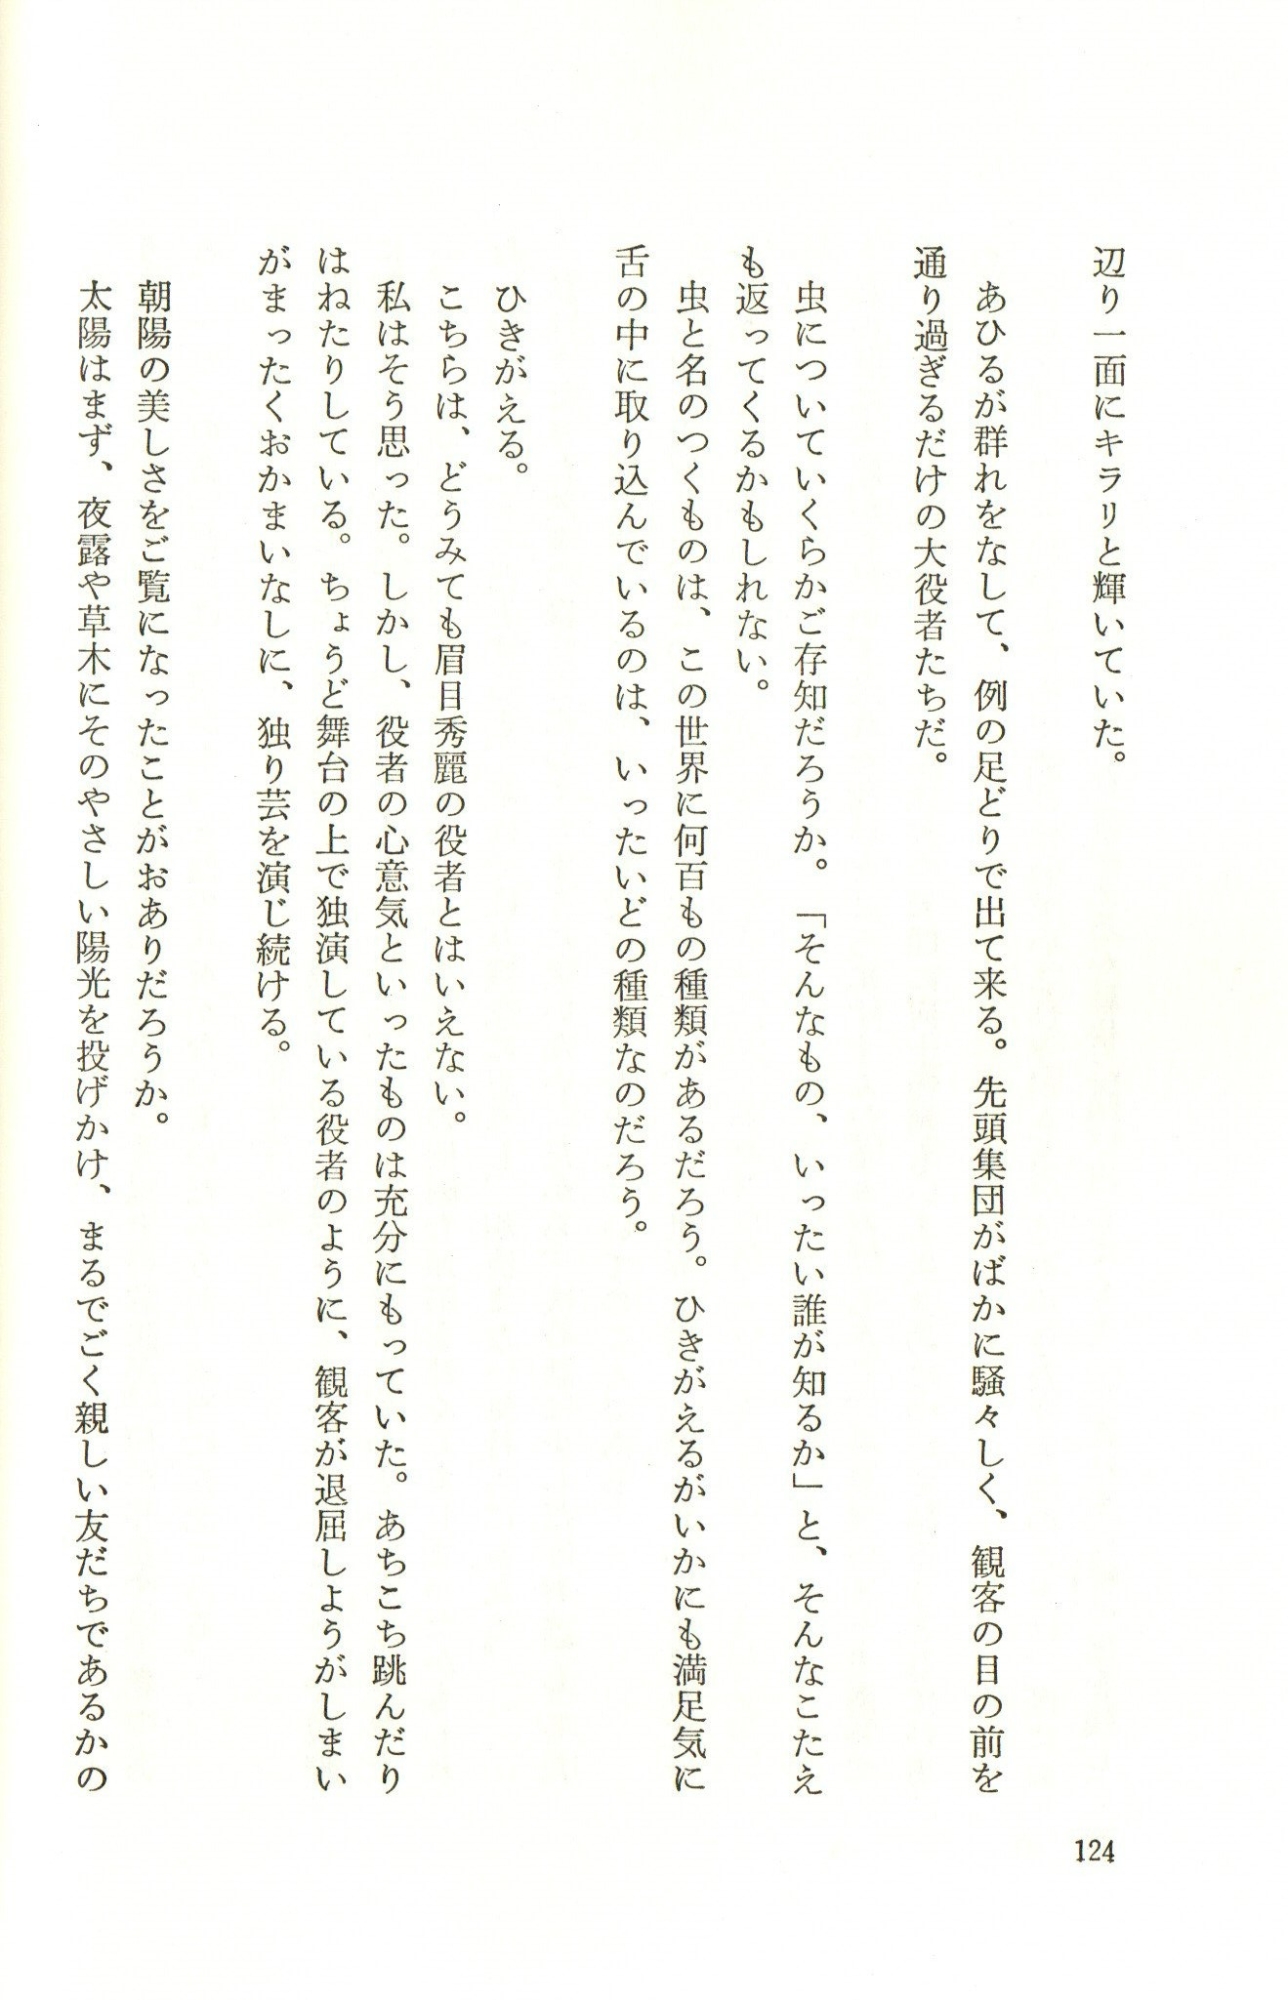 辺り一面にキラリと輝いていた。
あひるが群れをなして、例の足どりで出て来る。先頭集団がばかに騒々しく、観客の目の前を
通り過ぎるだけの大役者たちだ。
虫についていくらかご存知だろうか。「そんなもの、いったい誰が知るか」と、そんなこたえ
も返ってくるかもしれない。
虫と名のつくものは、この世界に何百もの種類があるだろう。ひきがえるがいかにも満足気に
舌の中に取り込んでいるのは、いったいどの種類なのだろう。
ひきがえる。
こちらは、どうみても眉目秀麗の役者とはいえない。
私はそう思った。しかし、役者の心意気といったものは充分にもっていた。あちこち跳んだり
はねたりしている。ちょうど舞台の上で独演している役者のように、観客が退屈しようがしまい
がまったくおかまいなしに、独り芸を演じ続ける。
朝陽の美しさをご覧になったことがおありだろうか。
太陽はまず、夜露や草木にそのやさしい陽光を投げかけ、まるでごく親しい友だちであるかの
124